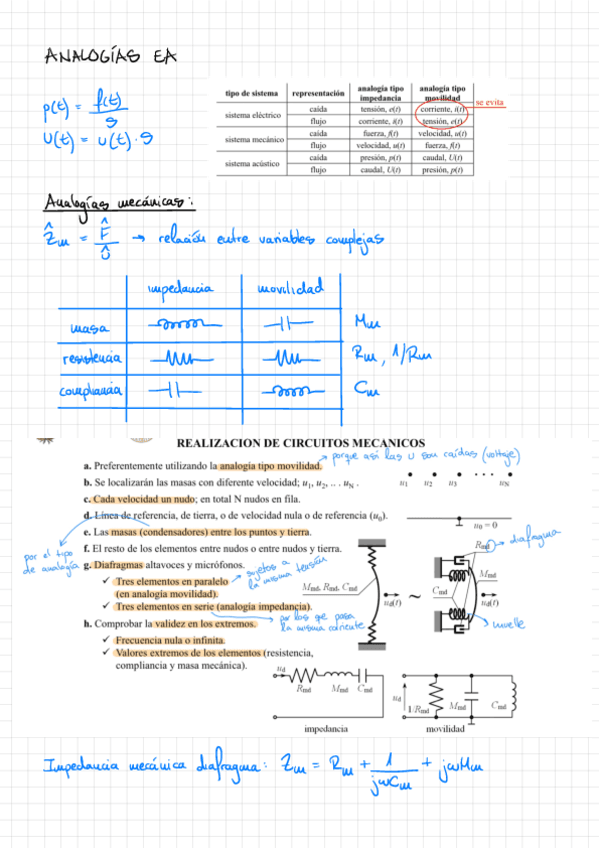 ANALOGÍAS EA
p(t) = f(t)/S
U(t) = u(t) · S
tipo de sistema representación analogía tipo impedancia analogía tipo movilidad
sistema eléctrico caída tensión, e(t) corriente, i(t) se evita
flujo corriente, i(t) tensión, e(t)
sistema mecánico caída fuerza, f(t) velocidad, u(t)
flujo velocidad, u(t) fuerza, f(t)
sistema acústico caída presión, p(t) caudal, U(t)
flujo caudal, U(t) presión, p(t)
Analogías mecánicas:
Ẑm = F̂/Û → relación entre variables complejas
impedancia movilidad
masa Mm
resistencia Rm, 1/Rm
compliancia Cm
REALIZACION DE CIRCUITOS MECANICOS
a. Preferentemente utilizando la analogía tipo movilidad.
porque así las U son caídas (voltaje)
b. Se localizarán las masas con diferente velocidad; u1, u2, .. . uN .
u1 u2 u3 uN
c. Cada velocidad un nudo; en total N nudos en fila.
d. Línea de referencia, de tierra, o de velocidad nula o de referencia (u0).
u0 = 0
e. Las masas (condensadores) entre los puntos y tierra.
por el tipo de analogía
f. El resto de los elementos entre nudos o entre nudos y tierra.
g. Diafragmas altavoces y micrófonos.
✓ Tres elementos en paralelo
(en analogía movilidad).
sujetos a la misma tensión
✓ Tres elementos en serie (analogía impedancia).
por los que pasa la misma corriente
Mmd, Rmd, Cmd
ud(t)
~
Rmd diafragma
Mmd
Cmd
ud(t)
muelle
h. Comprobar la validez en los extremos.
✓ Frecuencia nula o infinita.
✓ Valores extremos de los elementos (resistencia,
compliancia y masa mecánica).
ud
Rmd Mmd Cmd
impedancia
ud
1/Rmd Mmd Cmd
movilidad
Impedancia mecánica diafragma: Zm = Rm + 1/jωCm + jωMm